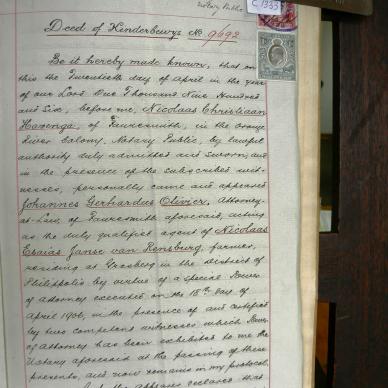 Notary Public
C 1333
Deed of Kinderbewys No. 9692
Be it hereby made known, that on
this the Twentieth day of April in the year
of our Lord One Thousand Nine Hundred
and Six, before me, Nicolaas Christiaan
Havenga, of Fauresmith, in the Orange
River Colony, Notary Public, by lawful
authority duly admitted and sworn, and
in the presence of the subscribed wit-
nesses, personally came and appeared
Johannes Gerhardus Olivier, Attorney-
at-Law, of Fauresmith aforesaid, acting
as the duly qualified agent of Nicolaas
Esaias Janse van Rensburg, farmer,
residing at in the district of
Philippolis by virtue of a special Power
of Attorney executed on the 18th day of
April 1906, in the presence of and certified
by two competent witnesses which Power
of Attorney has been exhibited to me the
Notary aforesaid at the passing of these
presents, and now remains in my protocol.
And the appearer declared that